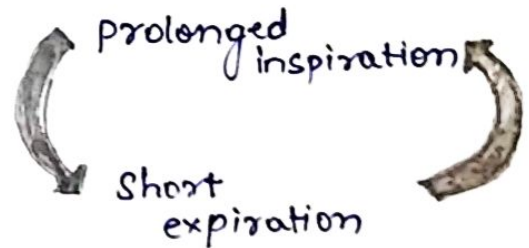 prolonged
inspiration
short
expiration